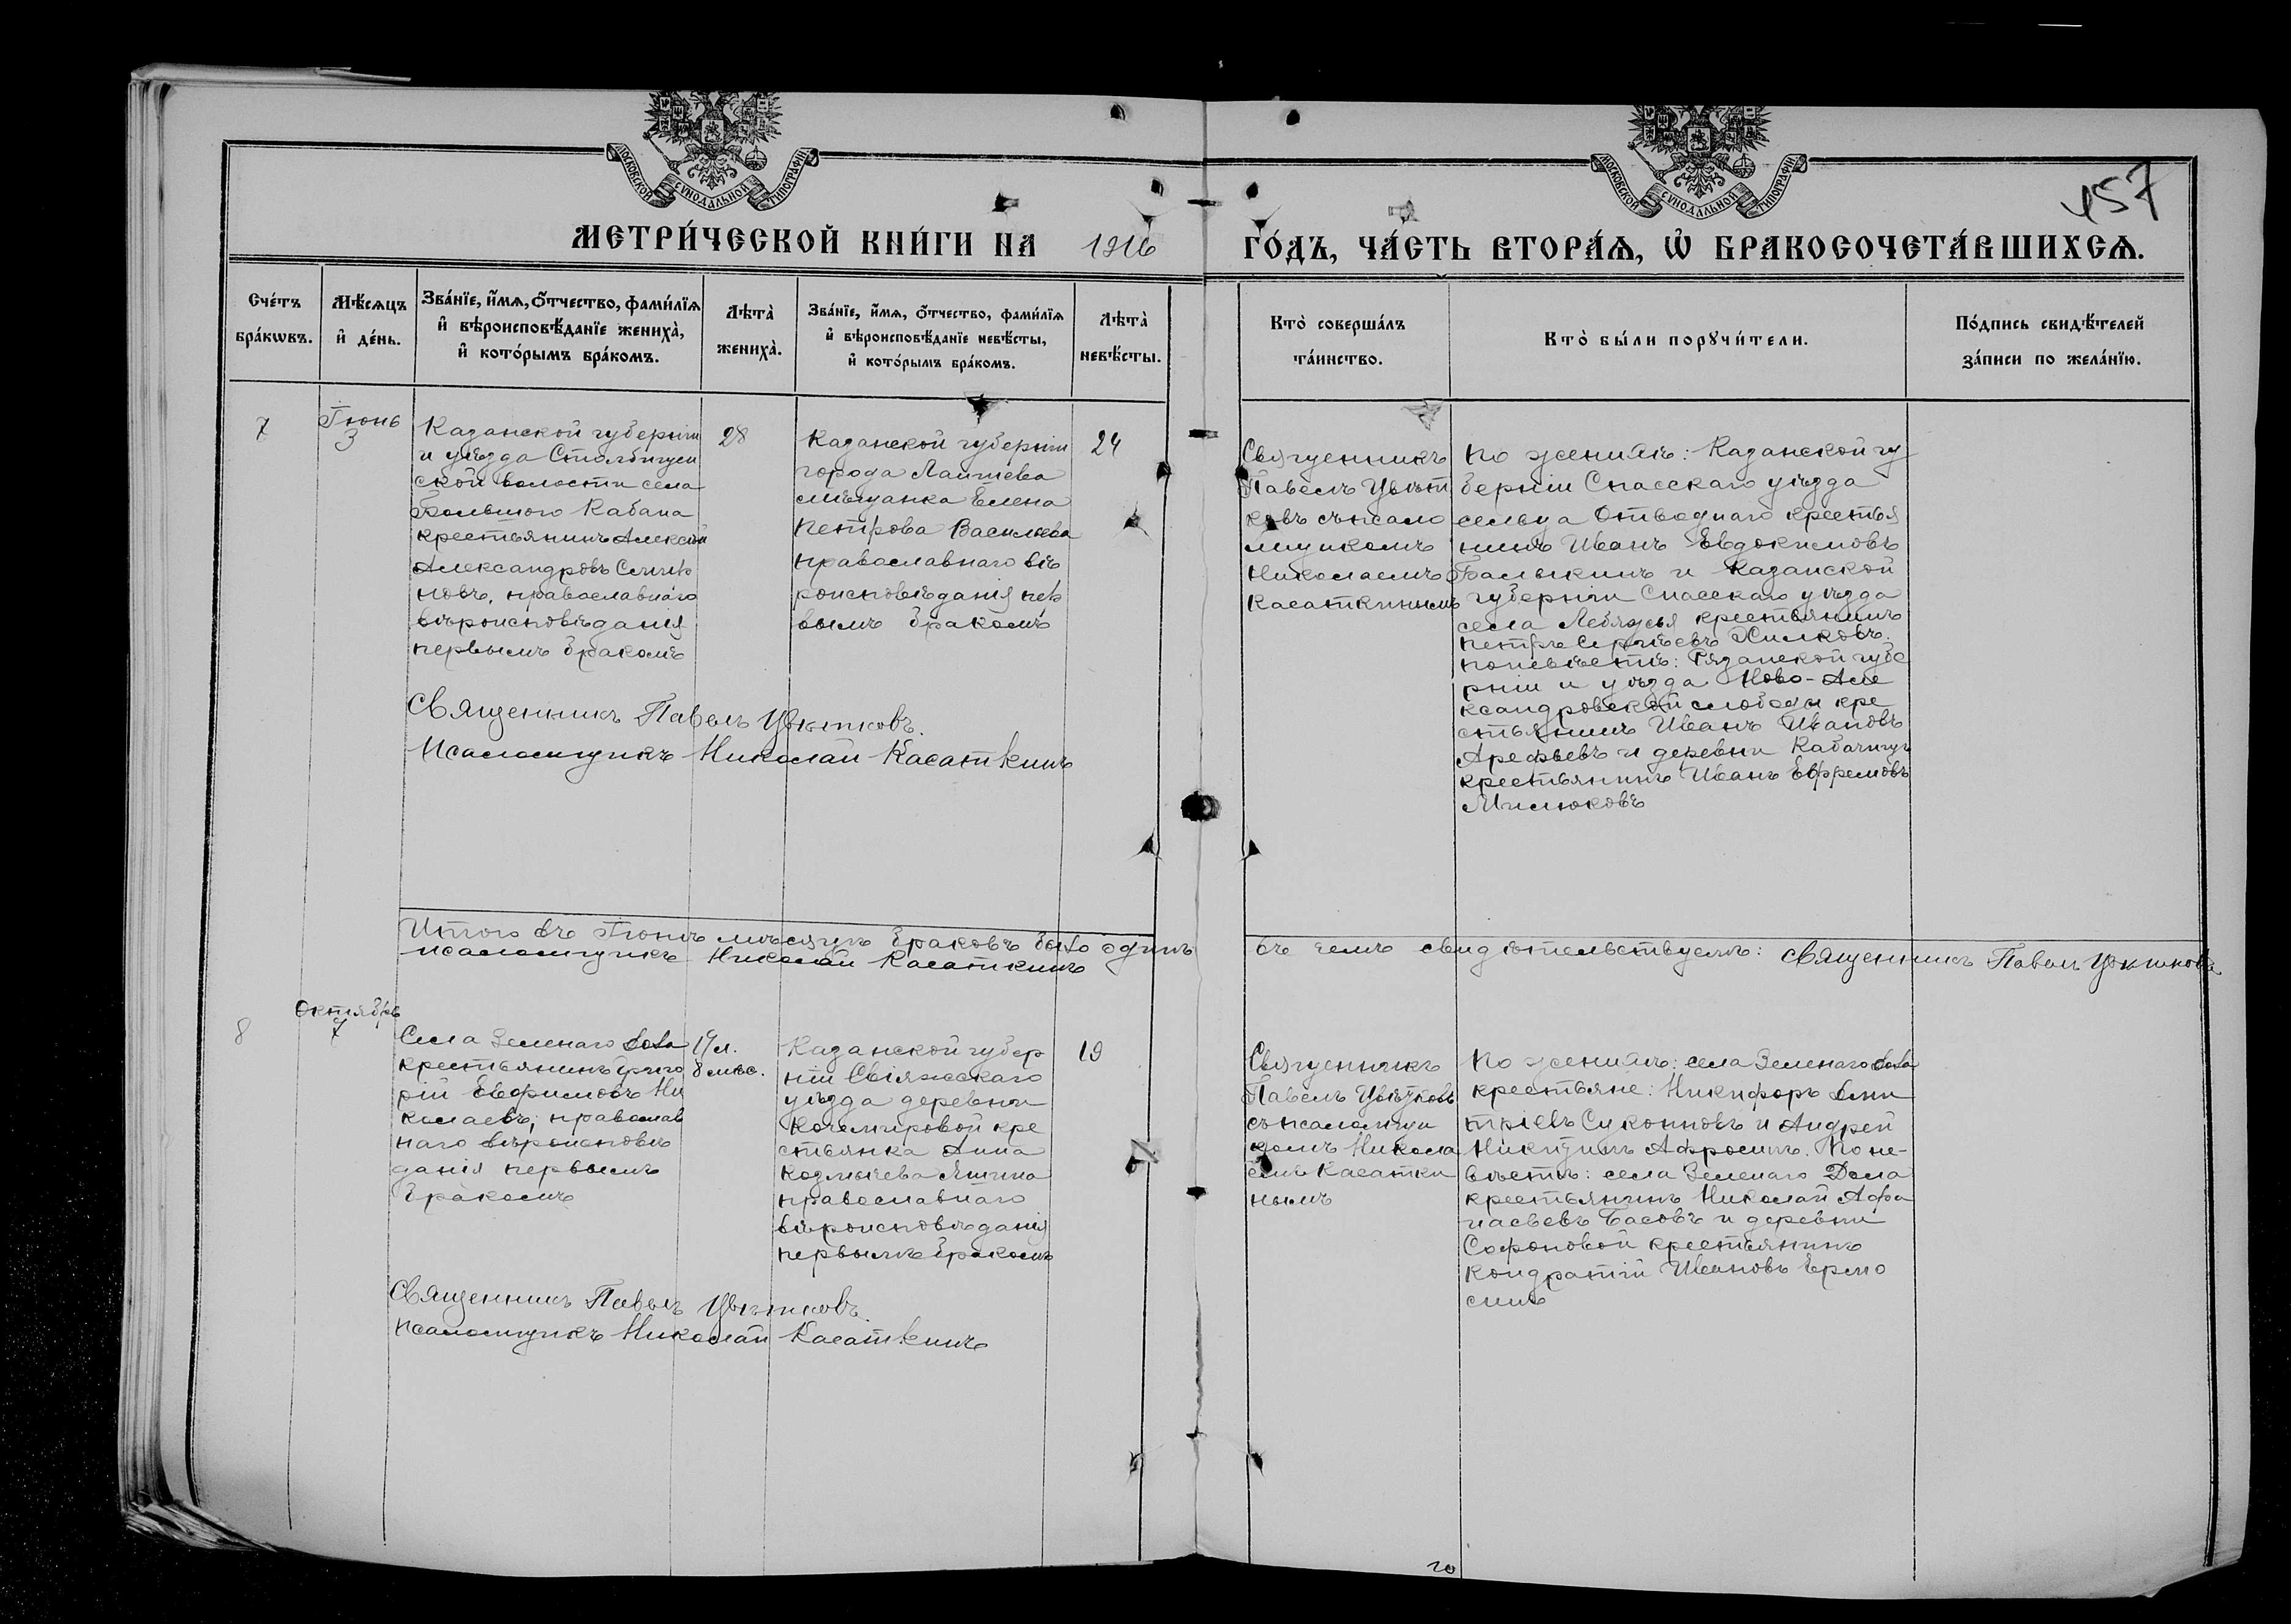 МОСКОВСКОЙ СѴНОДАЛЬНОЙ ТИПОГРАФІИ
МОСКОВСКОЙ СѴНОДАЛЬНОЙ ТИПОГРАФІИ
457
МЕТРИ́ЧЕСКОЙ КНИ́ГИ НА 1916 ГО́ДЪ, ЧА́СТЬ ВТОРА́Ѧ, Ѡ БРАКОСОЧЕТА́ВШИХСѦ.
Сче́тъ бра́кѡвъ.
Мѣ́сѧцъ и де́нь.
Зва́нїе, и́мѧ, о́тчество, фами́лїѧ
и вѣроисповѣ́данїе жениха̀,
и кото́рымъ бра́комъ.
Лѣта̀ жениха̀.
Зва́нїе, и́мѧ, о́тчество, фами́лїѧ
и вѣроисповѣ́данїе невѣ́сты,
и кото́рымъ бра́комъ.
Лѣта̀ невѣ́сты.
Кто̀ соверша́лъ
та́инство.
Кто̀ бы́ли порꙋчи́тели.
По́дпись свидѣ́телей
за́писи по жела́нїю.
7
Іюнь
3
Казанской губерніи
и уѣзда Столбищен
ской волости села
Большого Кабана
крестьянинъ Алексѣй
Александровъ
новъ, православнаго
вѣроисповѣданія
первымъ бракомъ
28
Казанской губерніи
города Лаишева
мѣщанка Елена
Петрова Васильева
православнаго вѣ
роисповѣданія пер
вымъ бракомъ
24
Священникъ
Павелъ Цвѣт
ковъ съ псало
мщикомъ
Николаемъ
Касаткинымъ
По женихѣ: Казанской гу
берніи Спасскаго уѣзда
сельца Отводнаго крестья
нинъ Иванъ Евдокимовъ
Балыкинъ и Казанской
губерніи Спасскаго уѣзда
села Лебяжья крестьянинъ
Петръ Сергѣевъ Жилковъ.
По невѣстѣ: Рязанской губе
рніи и уѣзда Ново-Але
ксандровской слободы кре
стьянинъ Иванъ Ивановъ
Арефьевъ и деревни Кабачищи
крестьянинъ Иванъ Ефремовъ
Милюковъ
Священникъ Павелъ Цвѣтковъ.
Псаломщикъ Николай Касаткинъ
Итого въ Іюнѣ мѣсяцѣ браковъ было одинъ въ чемъ свидѣтельствуемъ: священникъ Павелъ Цвѣтковъ
псаломщикъ Николай Касаткинъ
8
Октябрь
7
Села Зеленаго Дола
крестьянинъ Григо
рій Евфимовъ Ни
колаевъ, православ
наго вѣроисповѣ
данія первымъ
бракомъ
8 мѣс.
Казанской губер
ніи Свіяжскаго
уѣзда деревни
Кочемировой кре
стьянка Анна
Козмичева Яшина
православнаго
вѣроисповѣданія
первымъ бракомъ
19
Священникъ
Павелъ Цвѣтковъ
съ псаломщи
комъ Никола
емъ Касатки
нымъ
По женихѣ: села Зеленаго Дола
крестьяне: Никифоръ Дми
тріевъ Суконновъ и Андрей
Никитинъ Афросинъ. По не-
вѣстѣ: села Зеленаго Дола
крестьянинъ Николай Афа
насьевъ Басовъ и деревни
Софоновой крестьянинъ
Кондратій Ивановъ Ермо
синъ
Священникъ Павелъ Цвѣтковъ.
Псаломщикъ Николай Касаткинъ
20